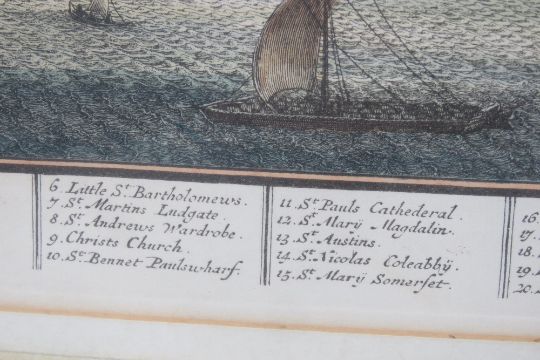 6. Little St. Bartholomews.
7. St. Martins Ludgate.
8. St. Andrews Wardrobe.
9. Christs Church.
10. St. Bennet Paulswharf.
11. St. Pauls Cathederal.
12. St. Marÿ Magdalin.
13. St. Austins.
14. St. Nicolas Coleabbÿ.
15. St. Marÿ Somerset.
16.
17.
18.
19.
20.